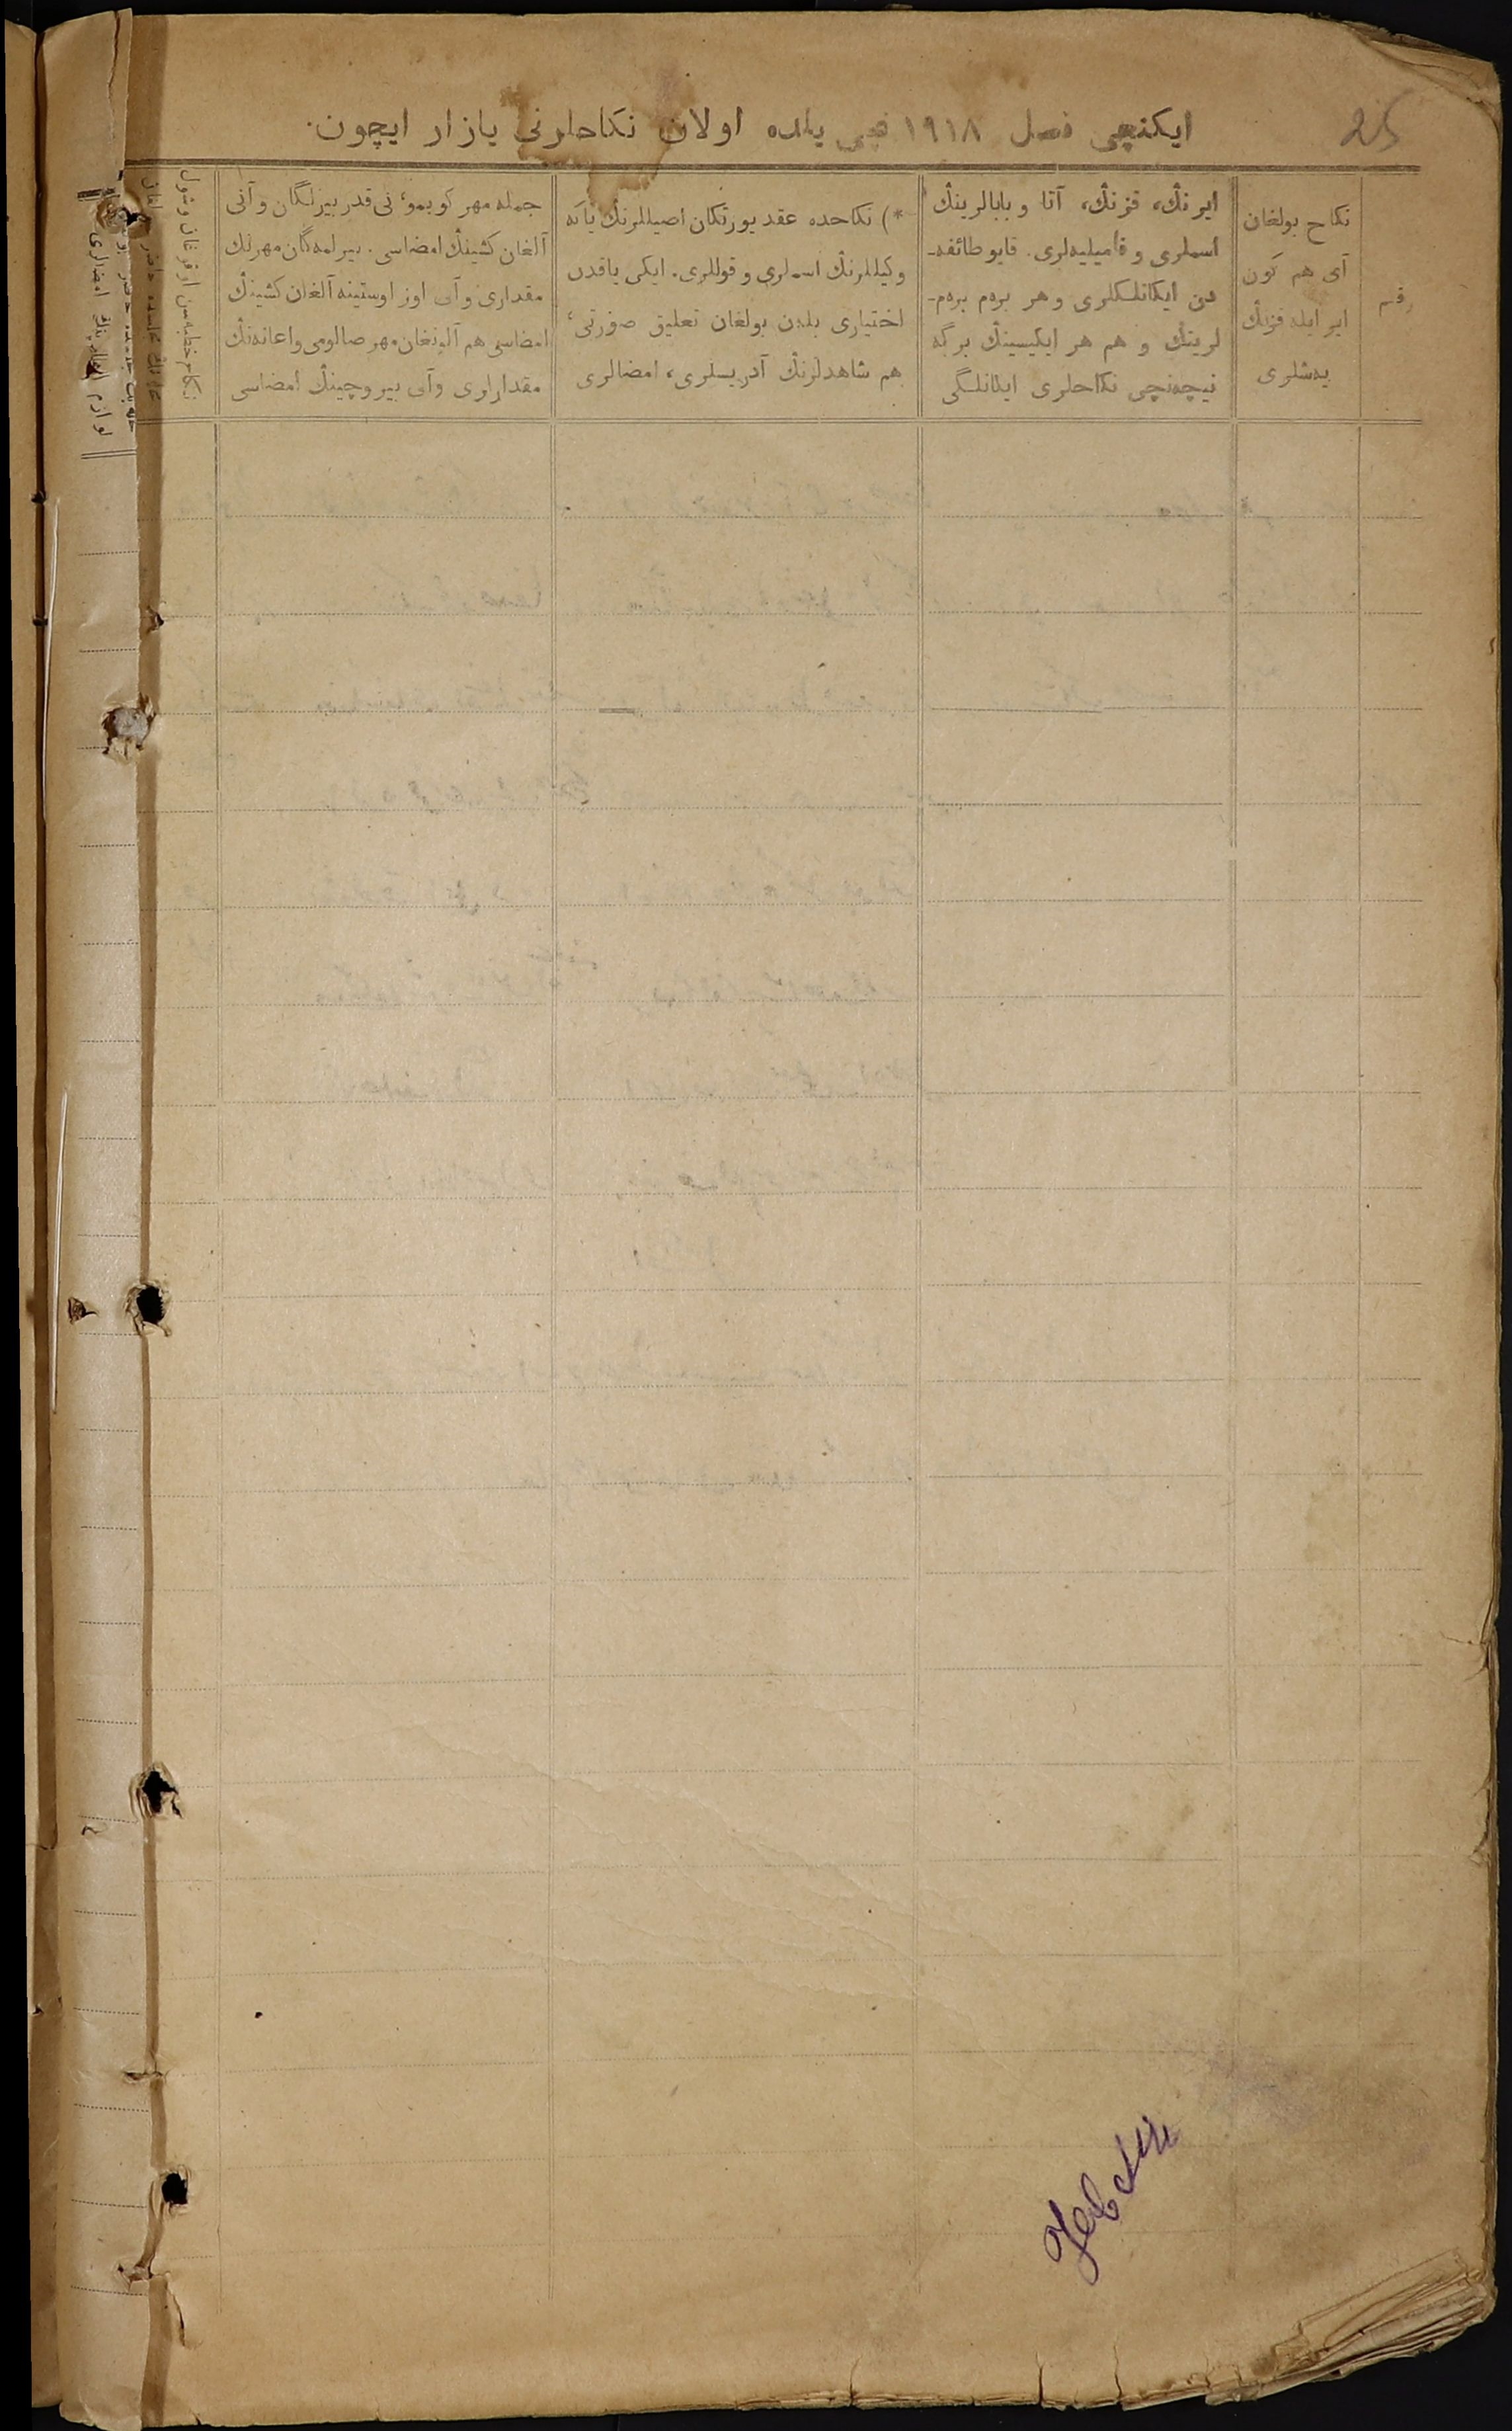 25
ایکنچی فصل ١٩١٨ نچی یلده اولان نکاحلرنی یازار ایچون.
رقم
نکاح بولغان
آی هم کون
ایر ایله قزنڭ
یەشلری
ایرنڭ، قزنڭ، آتا و بابالرینڭ
اسملری و فامیلیەلری. قایو طائفه‌ـ
دن ایکانلکلری و هر برەم برەم‌ـ
لرینڭ و هم هر ایکیسینڭ برگه
نیچەنچی نکاحلری ایکانلگی
*) نکاحده عقد یورتکان اصیللرنڭ یاکه
وکیللرنڭ اسملری و قوللری. ایکی یاقدن
اختیاری بلەن بولغان تعلیق صورتی،
هم شاهدلرنڭ آدریسلری، امضالری
جمله مهر کوبمو، نی قدر بیرلگان و آنی
آلغان کشینڭ امضاسی. بیرلمەگان مهرنڭ
مقداری و آنی اوز اوستینه آلغان کشینڭ
امضاسی هم آلونغان مهر صالومی و اعانەنڭ
مقدارلری و آنی بیروچینڭ امضاسی
نکاح خطبەسن اوقوغان و شول
لوازم امامینڭ امضالری